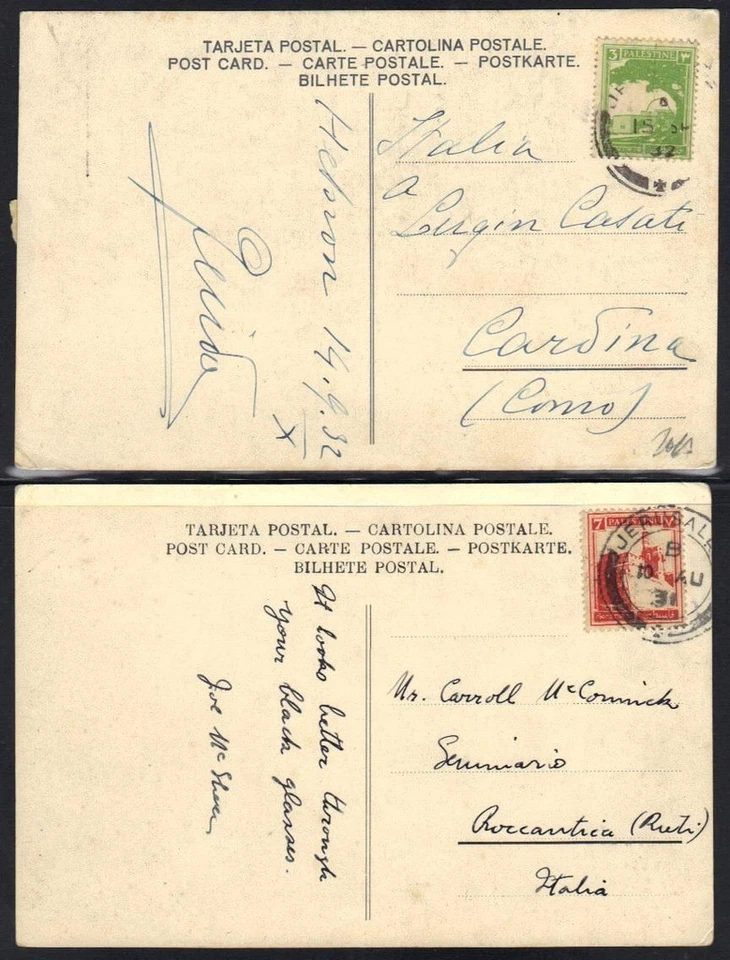 TARJETA POSTAL. — CARTOLINA POSTALE.
POST CARD. — CARTE POSTALE. — POSTKARTE.
BILHETE POSTAL.
3 PALESTINE ٣
15 SE
32
Italia
a
Luigin Casati
Cardina
(Como)
Hebron 14.9.32
X
Guido
TARJETA POSTAL. — CARTOLINA POSTALE.
POST CARD. — CARTE POSTALE. — POSTKARTE.
BILHETE POSTAL.
7 PALESTINE ٧
JERUSALE
B
10 AU
31
Mr. Carroll McCormick
Seminario
Roccantica (Rieti)
Italia
It looks better through
your black glasses.
Joe